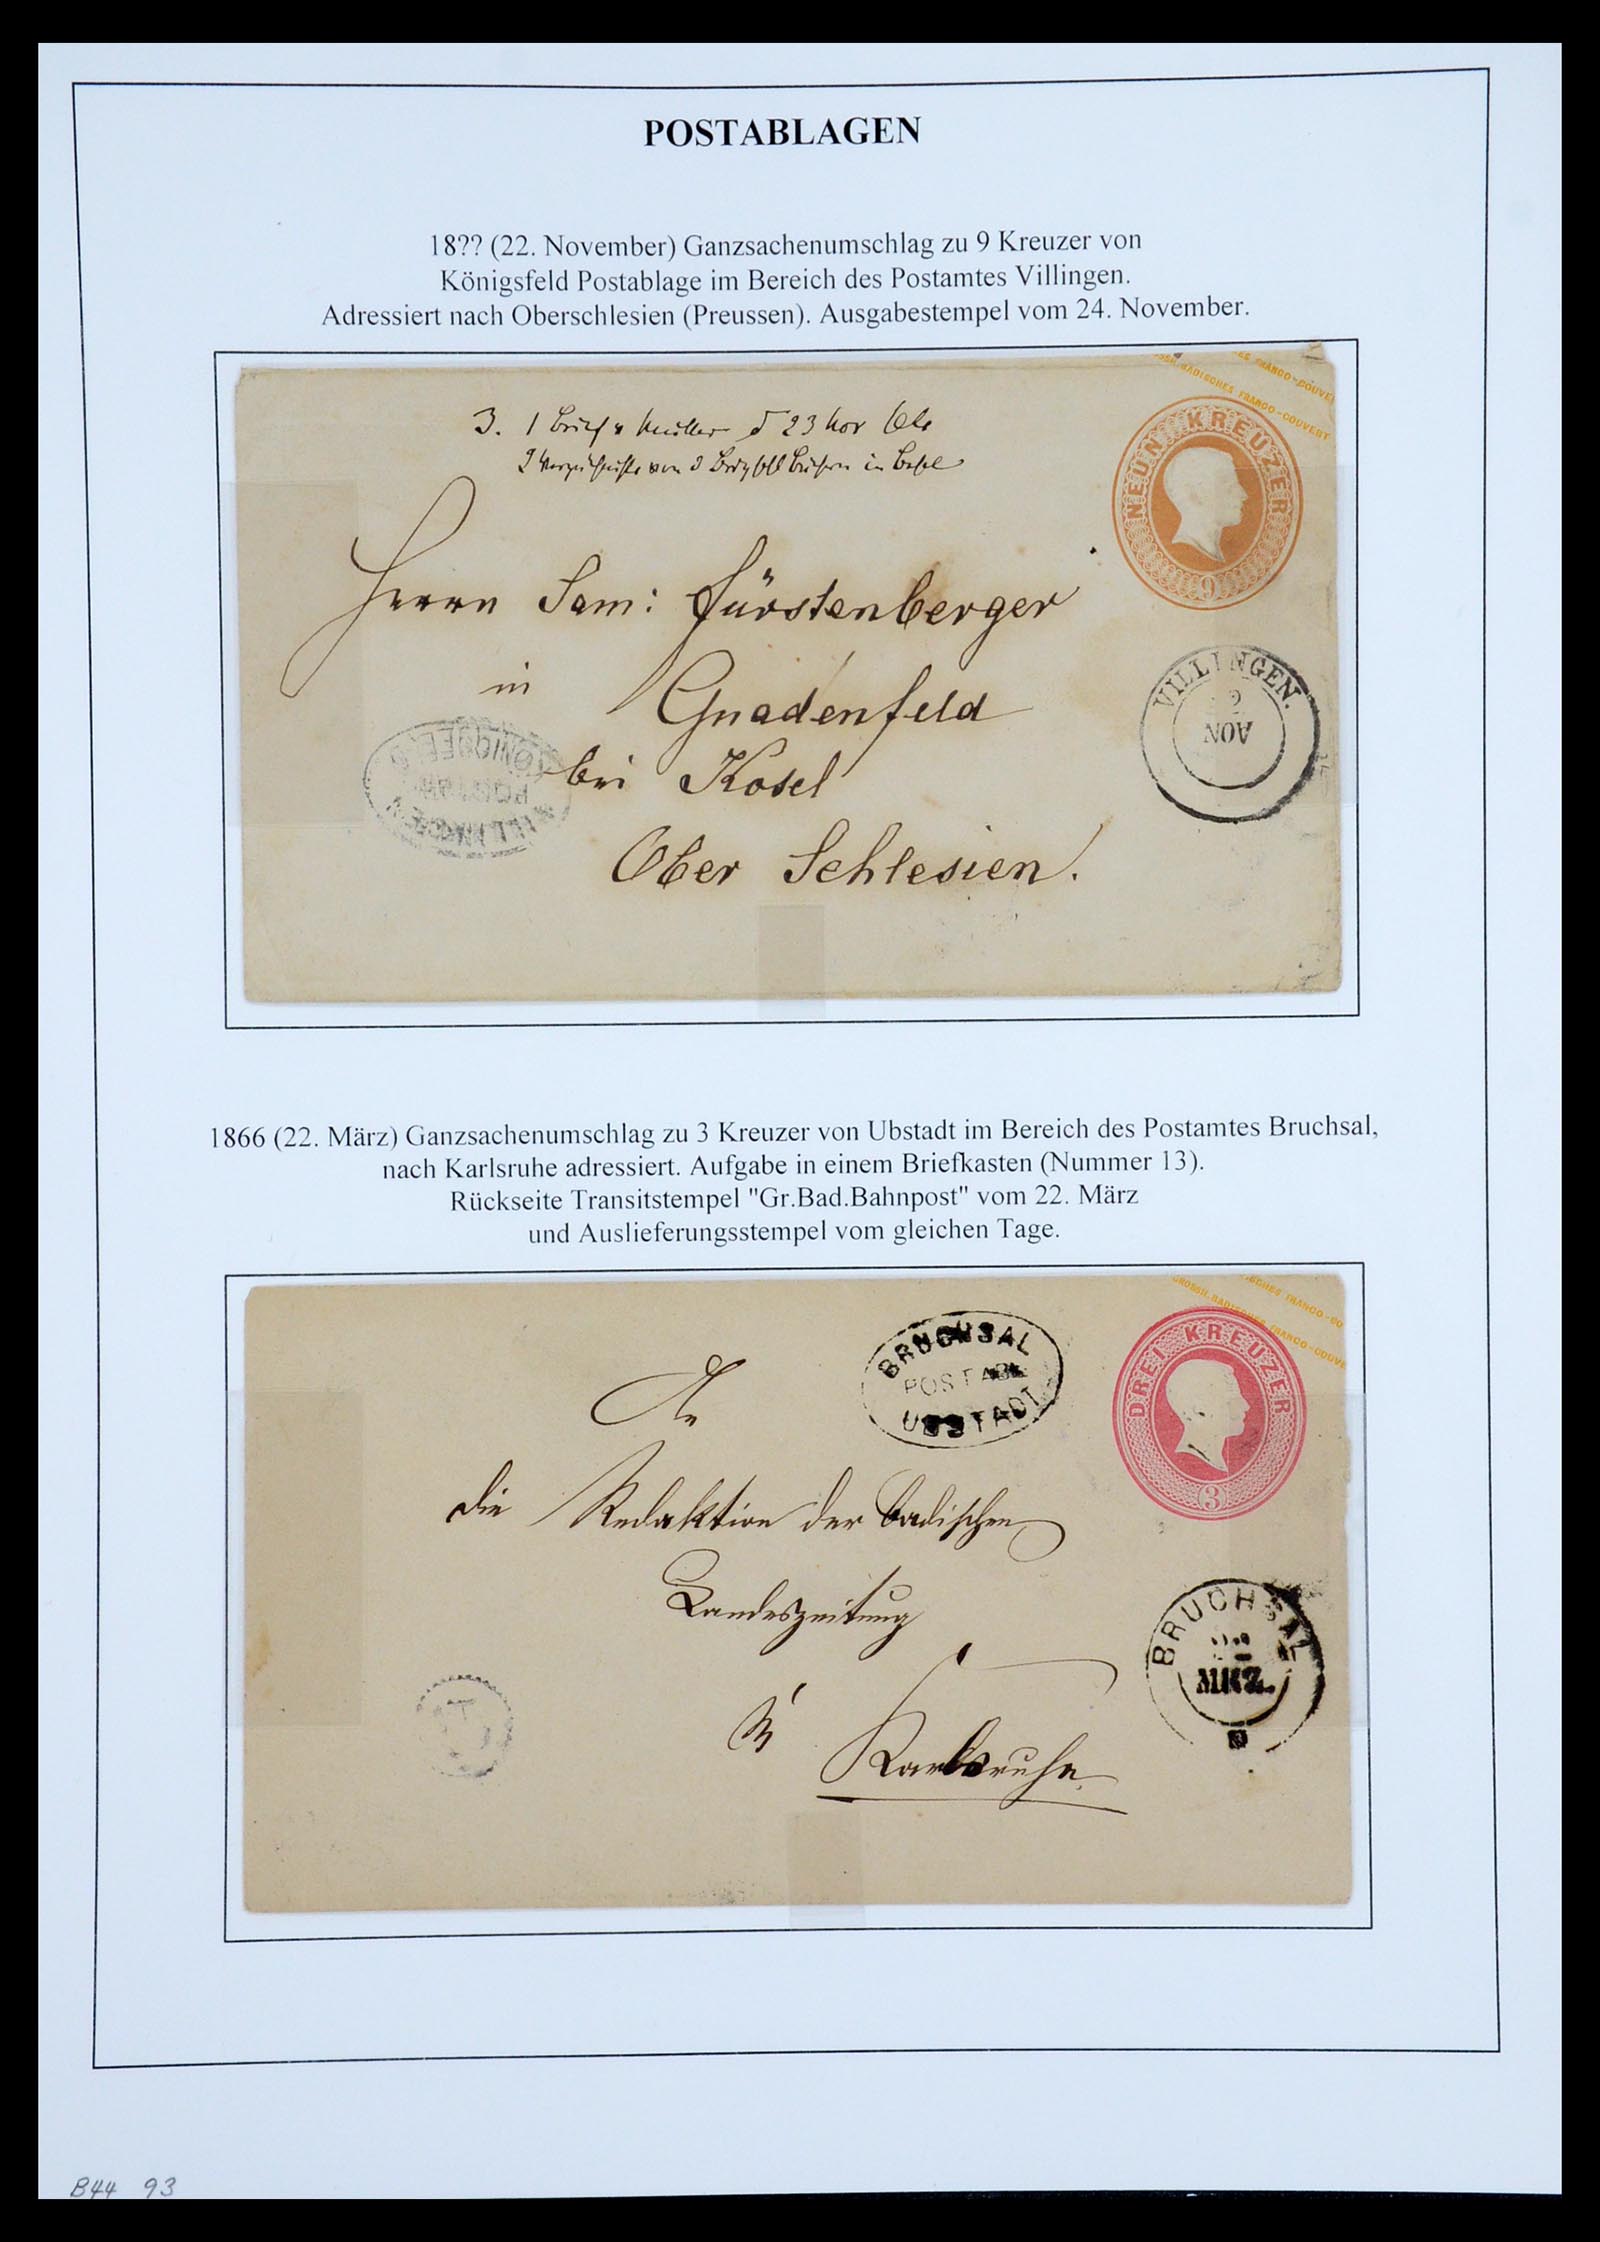 POSTABLAGEN
18?? (22. November) Ganzsachenumschlag zu 9 Kreuzer von
Königsfeld Postablage im Bereich des Postamtes Villingen.
Adressiert nach Oberschlesien (Preussen). Ausgabestempel vom 24. November.
BADISCHES FRANCO-COUVERT
NEUN KREUZER
9
Herrn Sam: Fürstenberger
in Gnadenfeld
VILLINGEN.
NOV
bei Kosel
Ober Schlesien.
1866 (22. März) Ganzsachenumschlag zu 3 Kreuzer von Ubstadt im Bereich des Postamtes Bruchsal,
nach Karlsruhe adressiert. Aufgabe in einem Briefkasten (Nummer 13).
Rückseite Transitstempel "Gr.Bad.Bahnpost" vom 22. März
und Auslieferungsstempel vom gleichen Tage.
GROSSH. BADISCHES FRANCO-COUVE
BRUCHSAL
POSTABL
UBSTADT
DREI KREUZER
3
An
die Redaktion der badischen
Landeszeitung
BRUCHSAL
22
MRZ.
in Karlsruhe.
B44 93